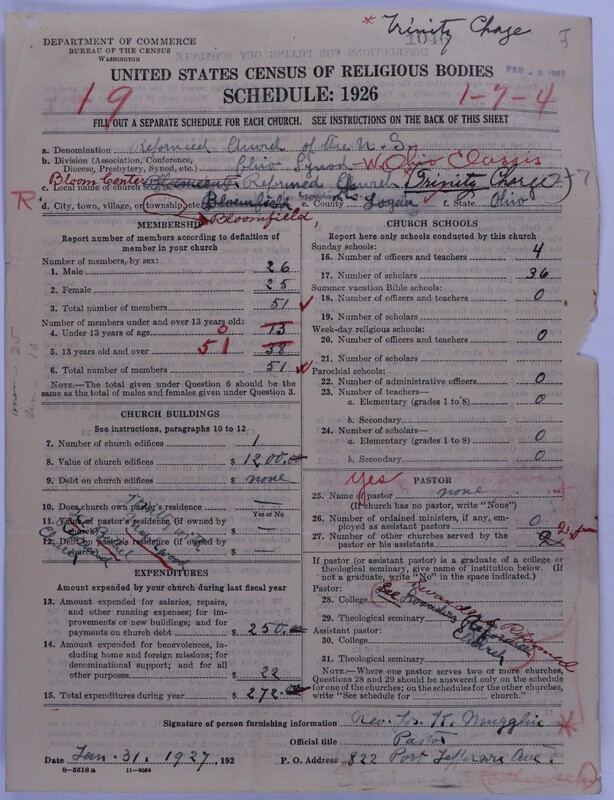 * Trinity Charge
DEPARTMENT OF COMMERCE
BUREAU OF THE CENSUS
WASHINGTON
UNITED STATES CENSUS OF RELIGIOUS BODIES
SCHEDULE: 1926
19
1-7-4
FILL OUT A SEPARATE SCHEDULE FOR EACH CHURCH. SEE INSTRUCTIONS ON THE BACK OF THIS SHEET
a. Denomination Reformed Church of the U. S.
b. Division (Association, Conference, Diocese, Presbytery, Synod, etc.) Ohio Synod - W. Ohio Classis
Bloom Center
c. Local name of church Reformed Church (Trinity Charge)
R
d. City, town, village, or township, etc. Bloomfield e. County Logan f. State Ohio
Bloomfield
MEMBERSHIP
Report number of members according to definition of member in your church
Number of members, by sex:
1. Male 26
2. Female 25
3. Total number of members 51
Number of members under and over 13 years old:
4. Under 13 years of age 0 13
5. 13 years old and over 51 38
6. Total number of members 51
NOTE.—The total given under Question 6 should be the same as the total of males and females given under Question 3.
CHURCH BUILDINGS
See instructions, paragraphs 10 to 12
7. Number of church edifices 1
8. Value of church edifices $ 1200.00
9. Debt on church edifices $ none
10. Does church own pastor's residence? —
Yes or No
11. Value of pastor's residence (if owned by church) $ —
12. Debt on pastor's residence (if owned by church) $ —
EXPENDITURES
Amount expended by your church during last fiscal year
13. Amount expended for salaries, repairs, and other running expenses; for improvements or new buildings; and for payments on church debt $ 250.00
14. Amount expended for benevolences, including home and foreign missions; for denominational support; and for all other purposes $ 22
15. Total expenditures during year $ 272.00
CHURCH SCHOOLS
Report here only schools conducted by this church
Sunday schools:
16. Number of officers and teachers 4
17. Number of scholars 36
Summer vacation Bible schools:
18. Number of officers and teachers 0
19. Number of scholars
Week-day religious schools:
20. Number of officers and teachers 0
21. Number of scholars
Parochial schools:
22. Number of administrative officers 0
23. Number of teachers—
a. Elementary (grades 1 to 8) 0
b. Secondary
24. Number of scholars—
a. Elementary (grades 1 to 8) 0
b. Secondary 0
Yes
PASTOR
25. Name of pastor none
(If church has no pastor, write "None")
26. Number of ordained ministers, if any, employed as assistant pastors 0
27. Number of other churches served by the pastor or his assistants 2
If pastor (or assistant pastor) is a graduate of a college or theological seminary, give name of institution below. (If not a graduate, write "No" in the space indicated.)
Pastor:
28. College See
29. Theological seminary Reformed
Assistant pastor: Church
30. College
31. Theological seminary
NOTE.—Where one pastor serves two or more churches, Questions 28 and 29 should be answered only on the schedule for one of the churches; on the schedules for the other churches, write "See schedule for church."
Signature of person furnishing information Rev. H. K.
Official title Pastor
Date Jan. 31. 1927, 192 P. O. Address 822 Port Jefferson Ave.
8-5518a 11-9084